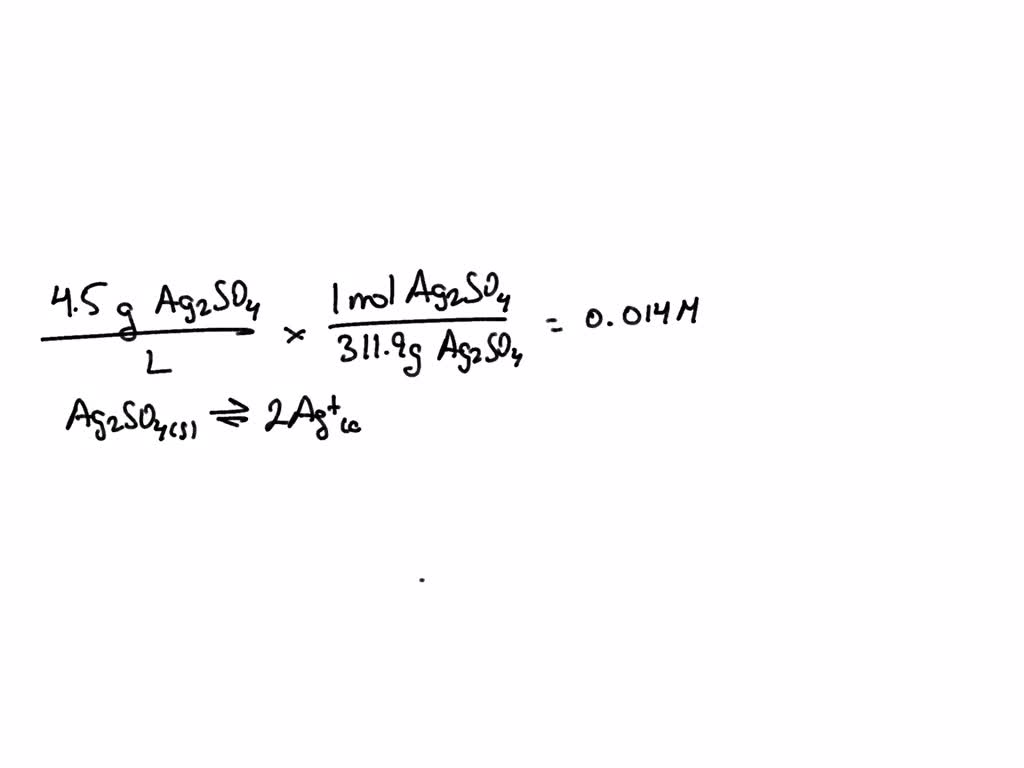 4.5 g Ag₂SO₄ / L × 1 mol Ag₂SO₄ / 311.9g Ag₂SO₄ = 0.014M
Ag₂SO₄(s) ⇌ 2Ag⁺(a